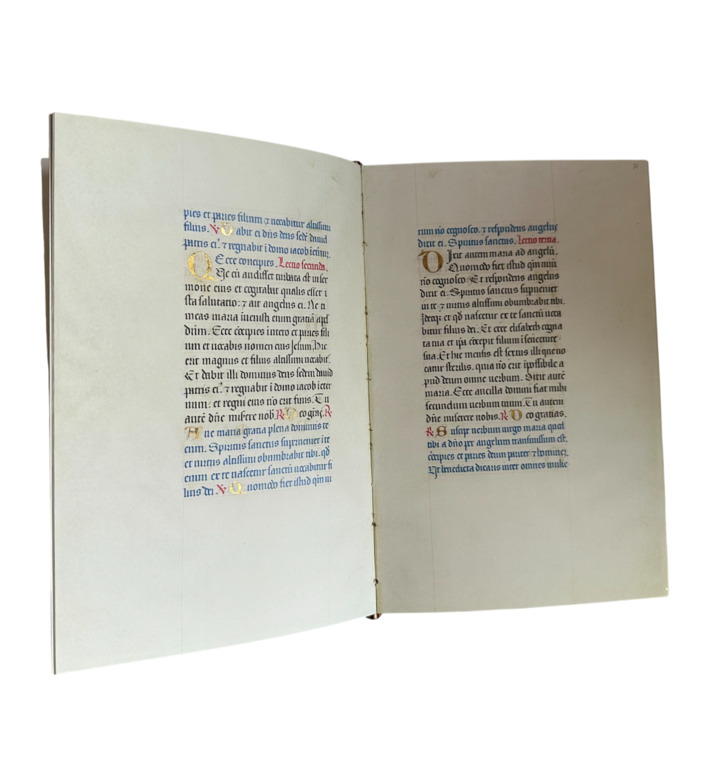 pies et paries filium ⁊ vocabitur altissimi
filius. V Dabit ei dñs deus sedē david
patris eiꝰ. ⁊ regnabit ī domo iacob ī eternū.
Ecce concipies. Lectio secunda.
Que cū audisset turbata est in ser
mone eius et cogitabat qualis esset i
sta salutatio: ⁊ ait angelus ei. Ne ti
meas maria invenisti enim gratiā apd
deum. Ecce cōcipies in utero et paries fili
um et vocabis nomen eius Jesum. Hic
erit magnus et filius altissimi vocabitᷣ.
Et dabit illi dominus deus sedem david
patris eiꝰ. ⁊ regnabit ī domo iacob in eter
num: et regni eius nō erit finis. Tu
autē dñe miserere nob. R Deo grās. R
Ave maria gratia plena dominus te
cum. Spiritus sanctus superveniet ī te
et virtus altissimi obumbrabit tibi. qd
enim ex te nascetur sanctū vocabitur fi
lius dei. V Quomodo fiet istud qm vi
rum nō cognosco. ⁊ respondens angelus
dixit ei. Spiritus sanctus. Lectio tercia.
Dixit autem maria ad angelū.
Quomodo fiet istud qm virū
nō cognosco. Et respondens angelus
dixit ei. Spiritus sanctus superveniet
in te et virtus altissimi obumbrabit tibi.
Ideoqꝫ et qd nascetur ex te sanctū voca
bitur filius dei. Et ecce elisabeth cogna
ta tua et ipa cōcepit filium ī senectute
sua. Et hic mensis est sextus illi que vo
catur sterilis. quia nō erit īpossibile a
pud deum omne verbum. Dixit autē
maria. Ecce ancilla domini fiat mihi
secundum verbum tuum. Tu autem
dñe miserere nobis. R Deo gratias.
R Suscipe verbum virgo maria quod
tibi a dño per angelum transmissum est.
cōcipies et paries deum pariter ⁊ hominem.
Ut benedicta dicaris inter omnes mulie